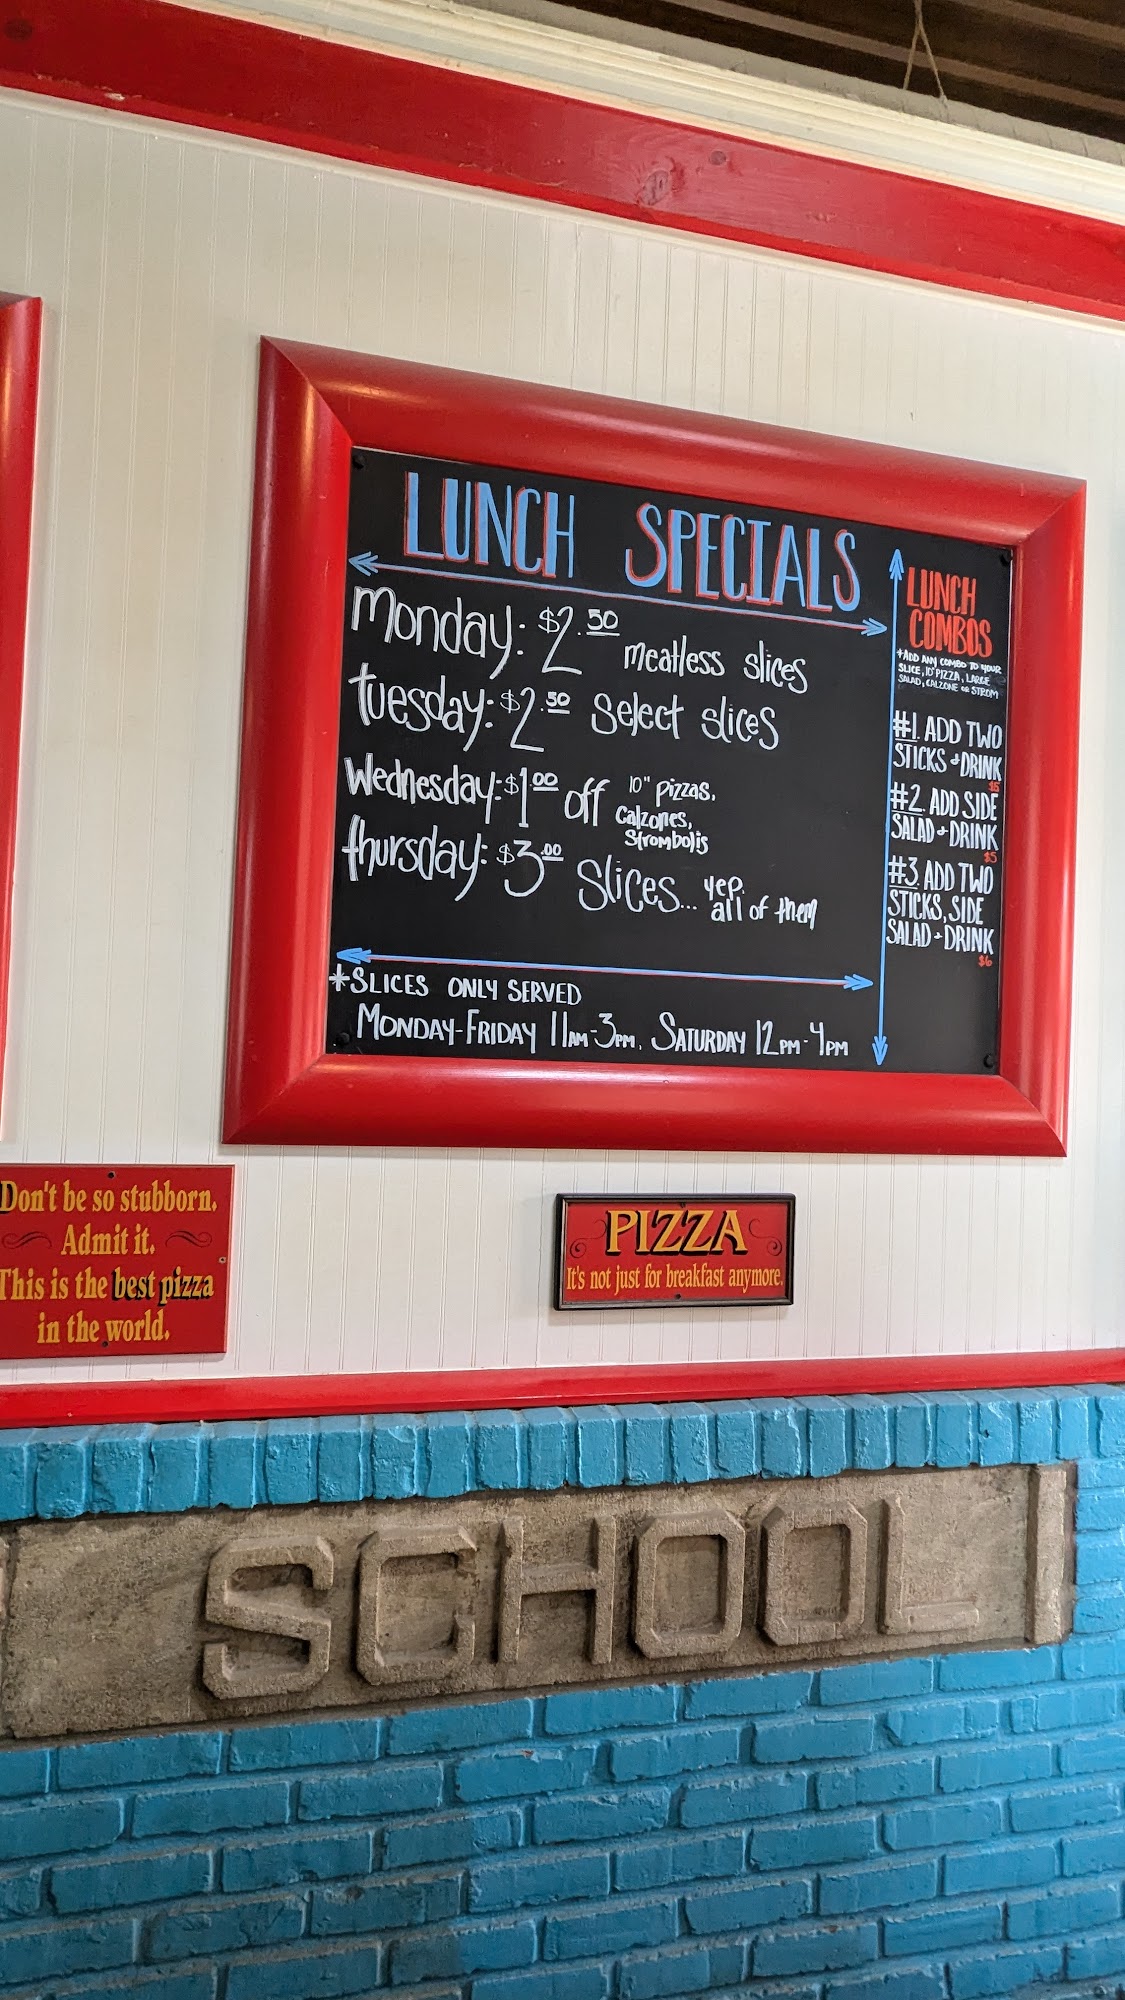 LUNCH SPECIALS
Monday: $2.50 meatless slices
tuesday: $2.50 Select slices
Wednesday: $1.00 off 10" pizzas,
Calzones,
Strombolis
thursday: $3.00 Slices... yep.
all of them
*SLICES ONLY SERVED
MONDAY-FRIDAY 11AM-3PM, SATURDAY 12PM-4PM
LUNCH
COMBOS
*ADD ANY COMBO TO YOUR
SLICE, 10" PIZZA, LARGE
SALAD, CALZONE OR STROM
#1. ADD TWO
STICKS + DRINK
$5
#2. ADD SIDE
SALAD + DRINK
$5
#3. ADD TWO
STICKS, SIDE
SALAD + DRINK
$6
Don't be so stubborn.
Admit it.
This is the best pizza
in the world.
PIZZA
It's not just for breakfast anymore.
SCHOOL